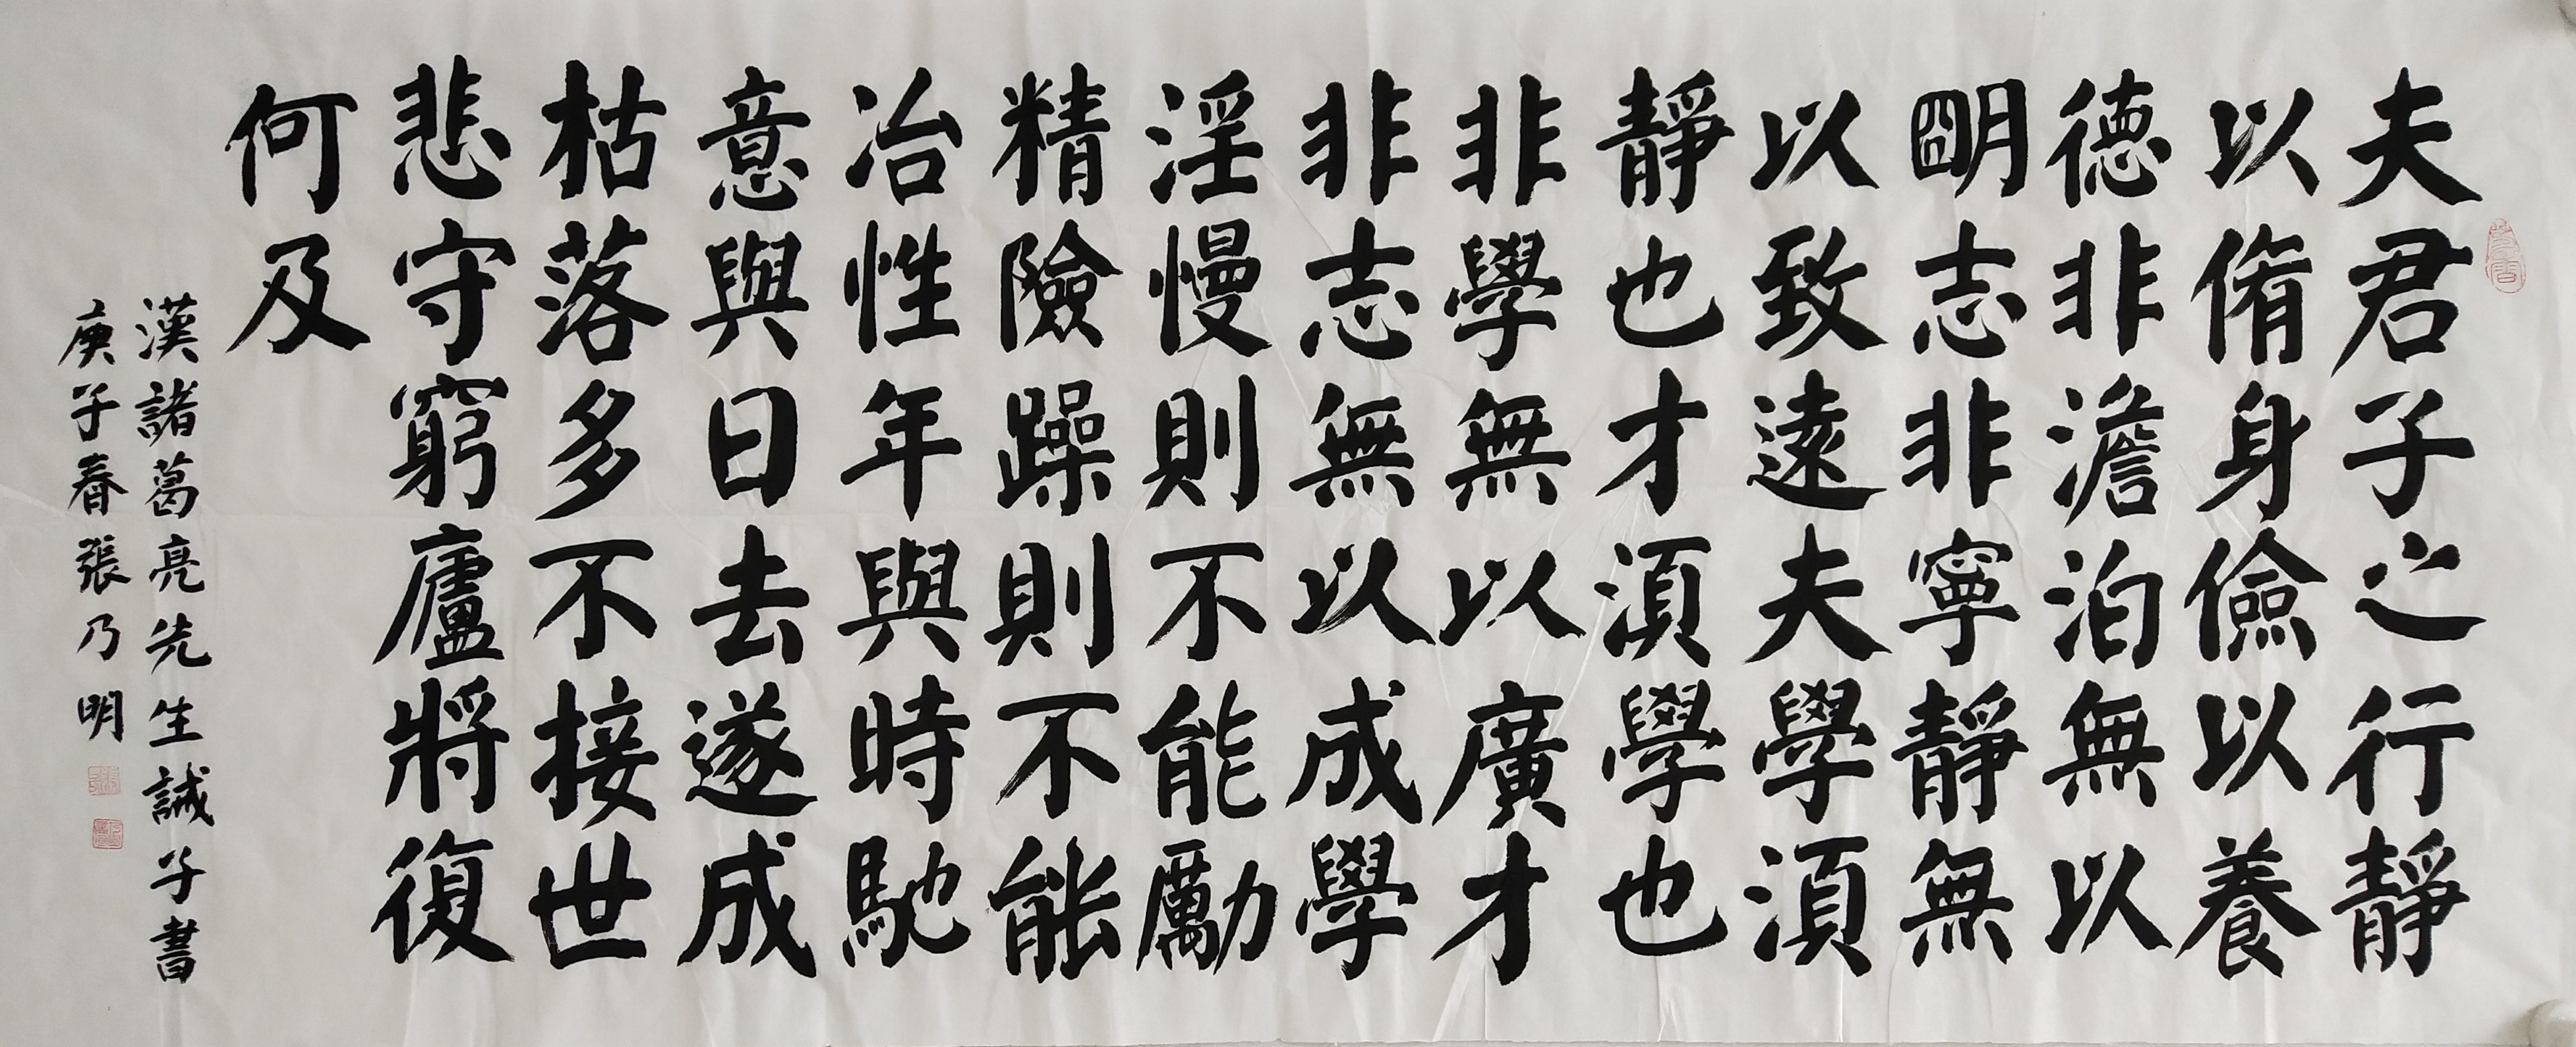 夫君子之行靜
以脩身儉以養
德非澹泊無以
明志非寧靜無
以致遠夫學須
靜也才須學也
非學無以廣才
非志無以成學
淫慢則不能勵
精險躁則不能
冶性年與時馳
意與日去遂成
枯落多不接世
悲守窮廬將復
何及
漢諸葛亮先生誡子書
庚子春張乃明